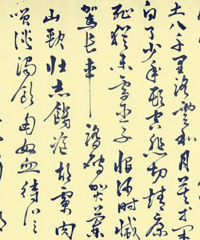 土八千里路雲和月莫等閒
白了少年頭空悲切靖康
恥猶未雪臣子恨何時滅
駕長車踏破賀蘭
山缺壯志飢餐胡虜肉
笑談渴飲匈奴血待從